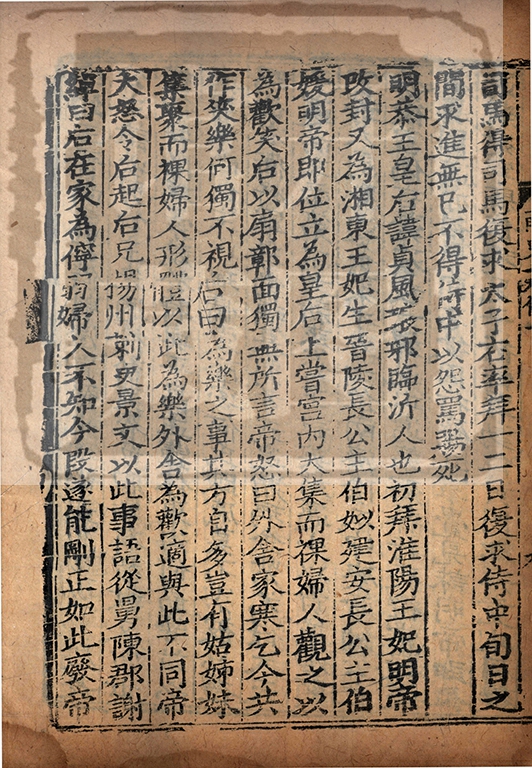 司馬得司馬復求太子右率拜一二日復求侍中旬日之
間求進無已不得侍中以怨罵賜死
明恭王皇后諱貞風琅邪臨沂人也初拜淮陽王妃明帝
改封又為湘東王妃生晉陵長公主伯姒建安長公主伯
媛明帝即位立為皇后上嘗宮內大集而裸婦人觀之以
為歡笑后以扇鄣面獨無所言帝怒曰外舍家寒乞今共
作笑樂何獨不視后曰為樂之事其方自多豈有姑姊妹
集聚而裸婦人形體以此為樂外舍為歡適與此不同帝
大怒令后起后兄揚州刺史景文以此事語從舅陳郡謝
緯曰后在家為儜弱婦人不知今段遂能剛正如此廢帝